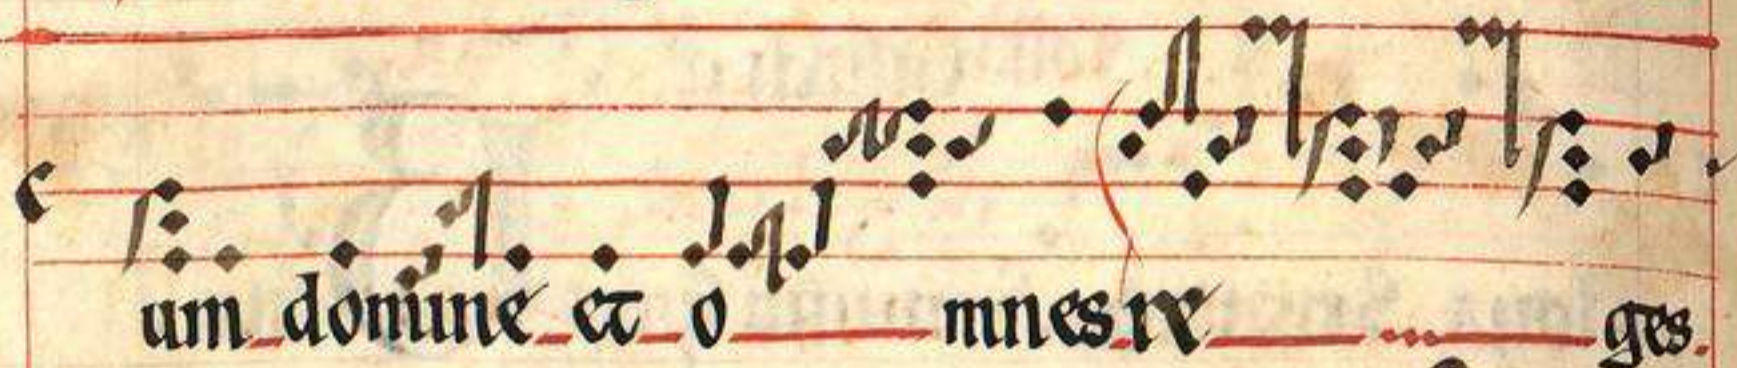 um domine et o mnes re ges.